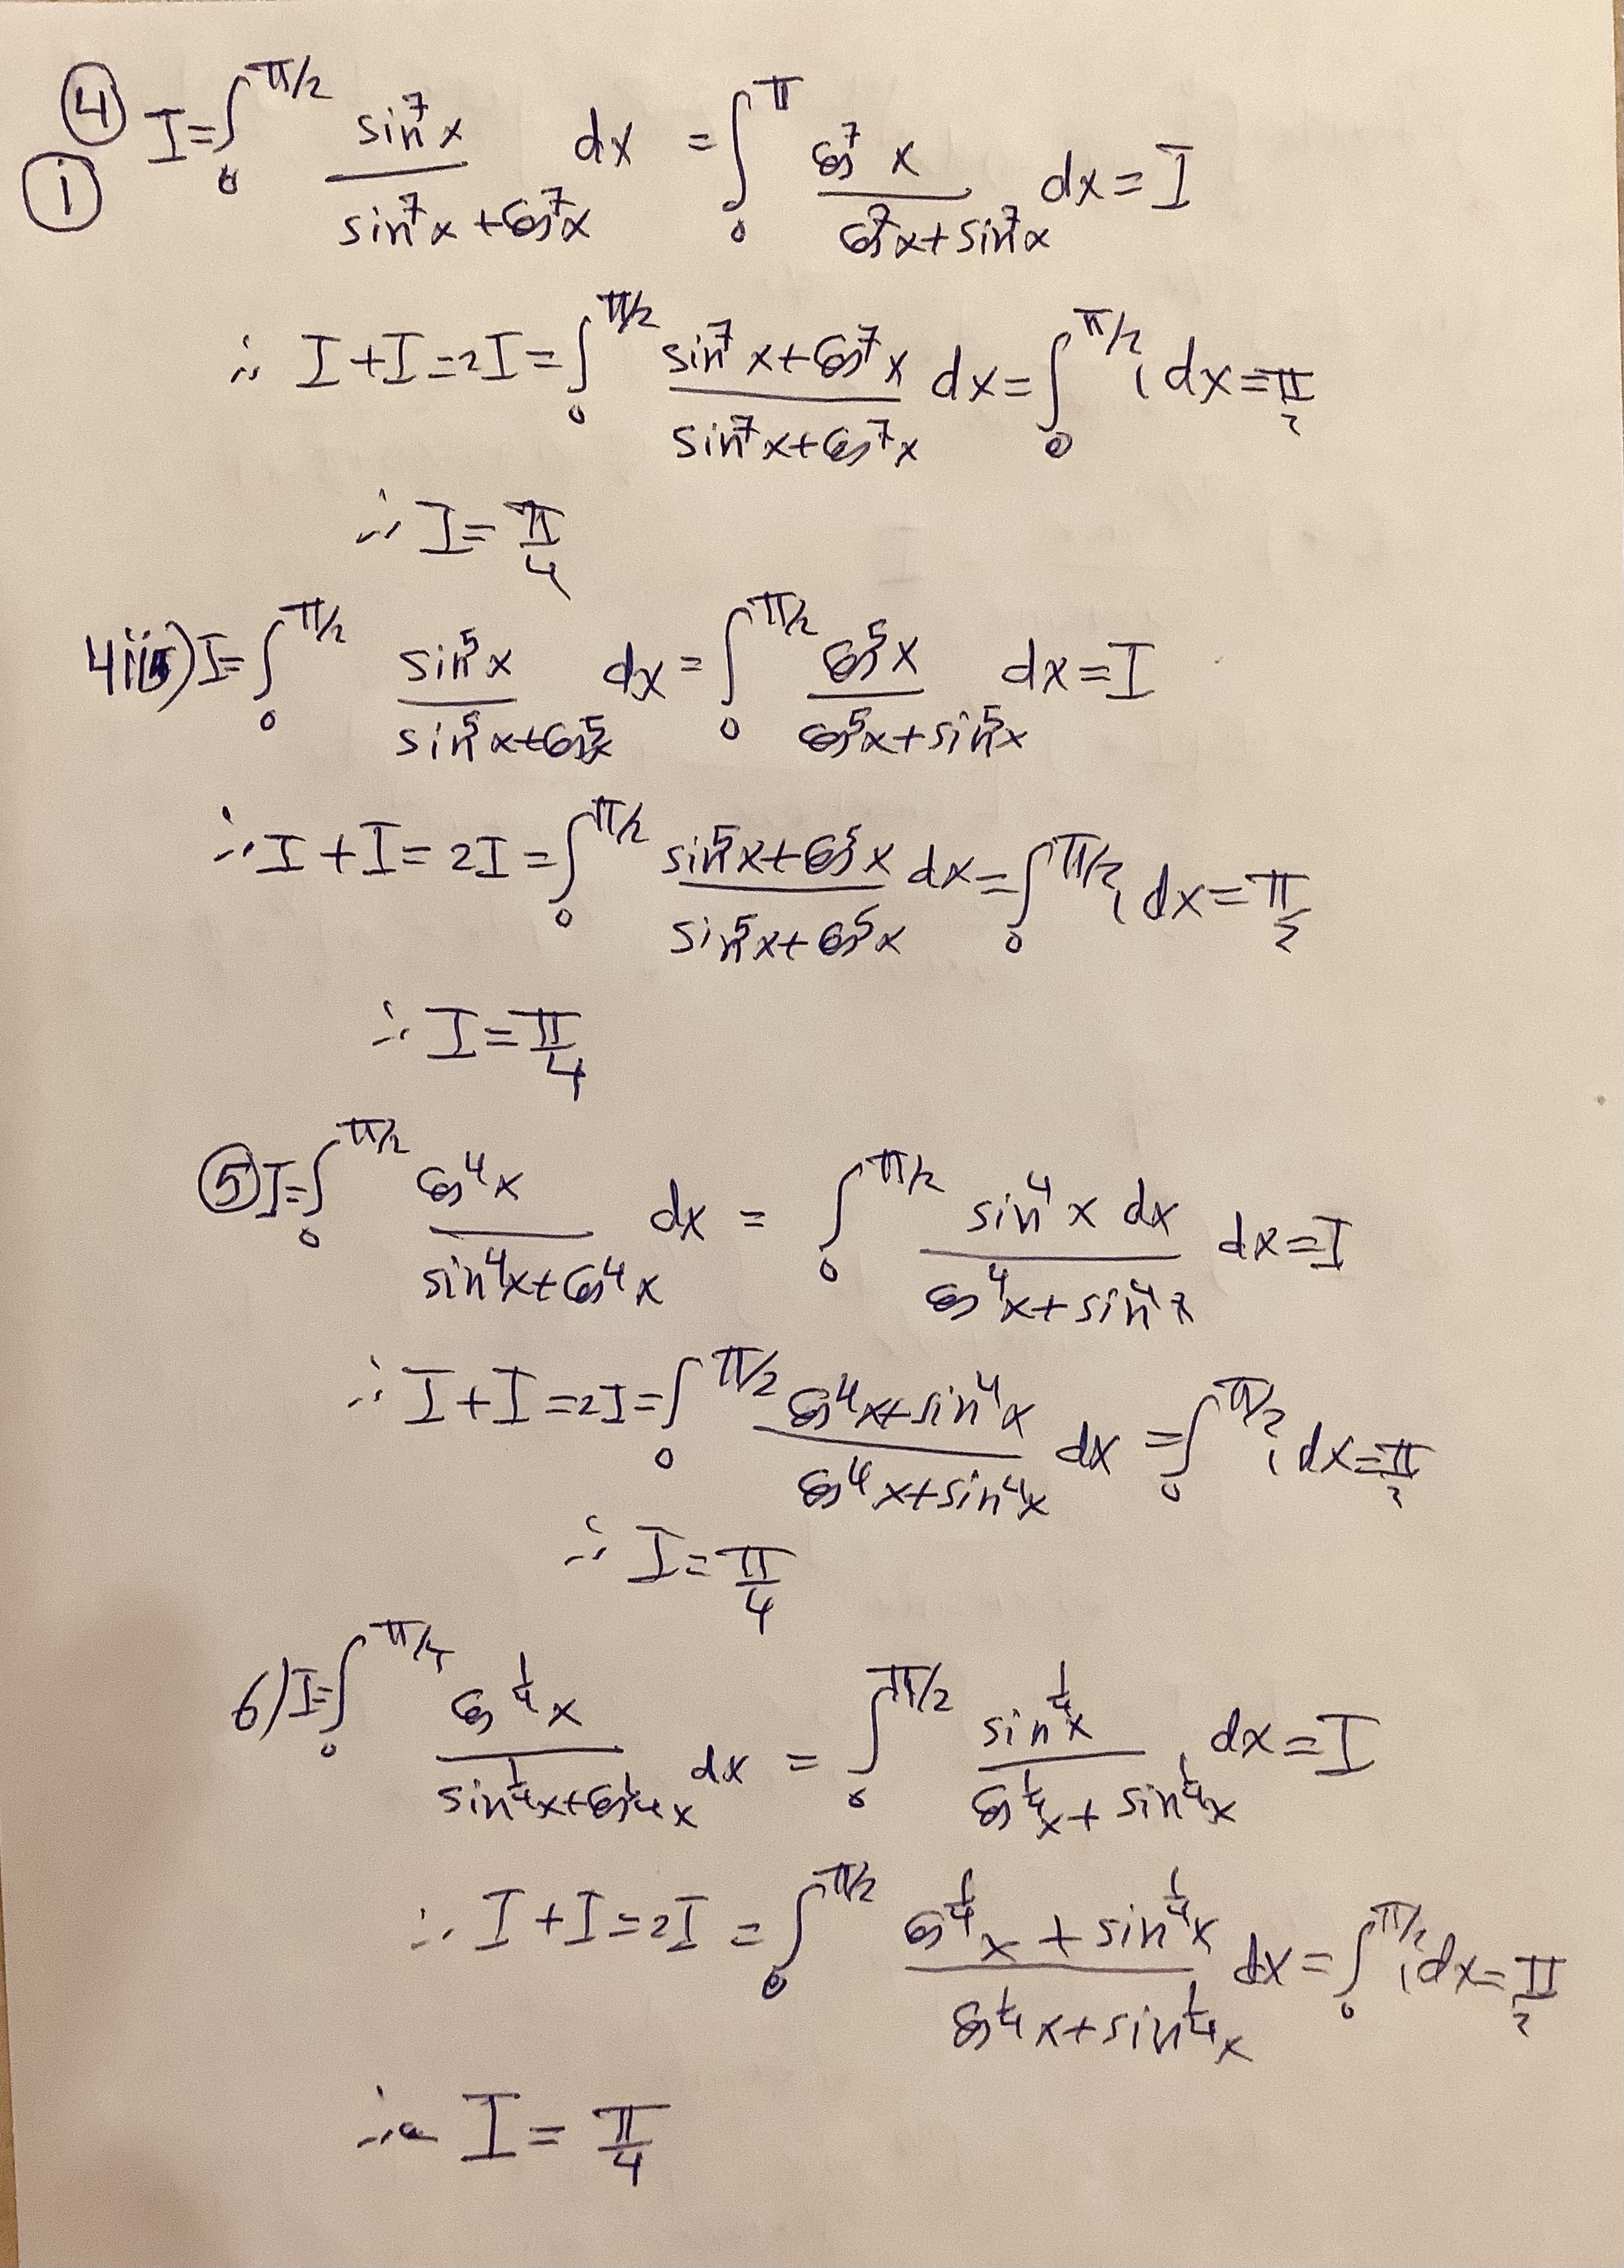 ④ i I = ∫₀^{π/2} sin⁷x / (sin⁷x + cos⁷x) dx = ∫₀^{π} cos⁷x / (cos⁷x + sin⁷x) dx = I
∴ I + I = 2I = ∫₀^{π/2} (sin⁷x + cos⁷x) / (sin⁷x + cos⁷x) dx = ∫₀^{π/2} 1 dx = π/2
∴ I = π/4
4ii) I = ∫₀^{π/2} sin⁵x / (sin⁵x + cos⁵x) dx = ∫₀^{π/2} cos⁵x / (cos⁵x + sin⁵x) dx = I
∴ I + I = 2I = ∫₀^{π/2} (sin⁵x + cos⁵x) / (sin⁵x + cos⁵x) dx = ∫₀^{π/2} 1 dx = π/2
∴ I = π/4
⑤ I = ∫₀^{π/2} cos⁴x / (sin⁴x + cos⁴x) dx = ∫₀^{π/2} sin⁴x dx / (cos⁴x + sin⁴x) dx = I
∴ I + I = 2I = ∫₀^{π/2} (cos⁴x + sin⁴x) / (cos⁴x + sin⁴x) dx = ∫₀^{π/2} 1 dx = π/2
∴ I = π/4
6) I = ∫₀ cos^{1/4}x / (sin^{1/4}x + cos^{1/4}x) dx = ∫₀^{π/2} sin^{1/4}x / (cos^{1/4}x + sin^{1/4}x) dx = I
∴ I + I = 2I = ∫₀^{π/2} (cos^{1/4}x + sin^{1/4}x) / (cos^{1/4}x + sin^{1/4}x) dx = ∫₀^{π/2} 1 dx = π/2
∴ I = π/4